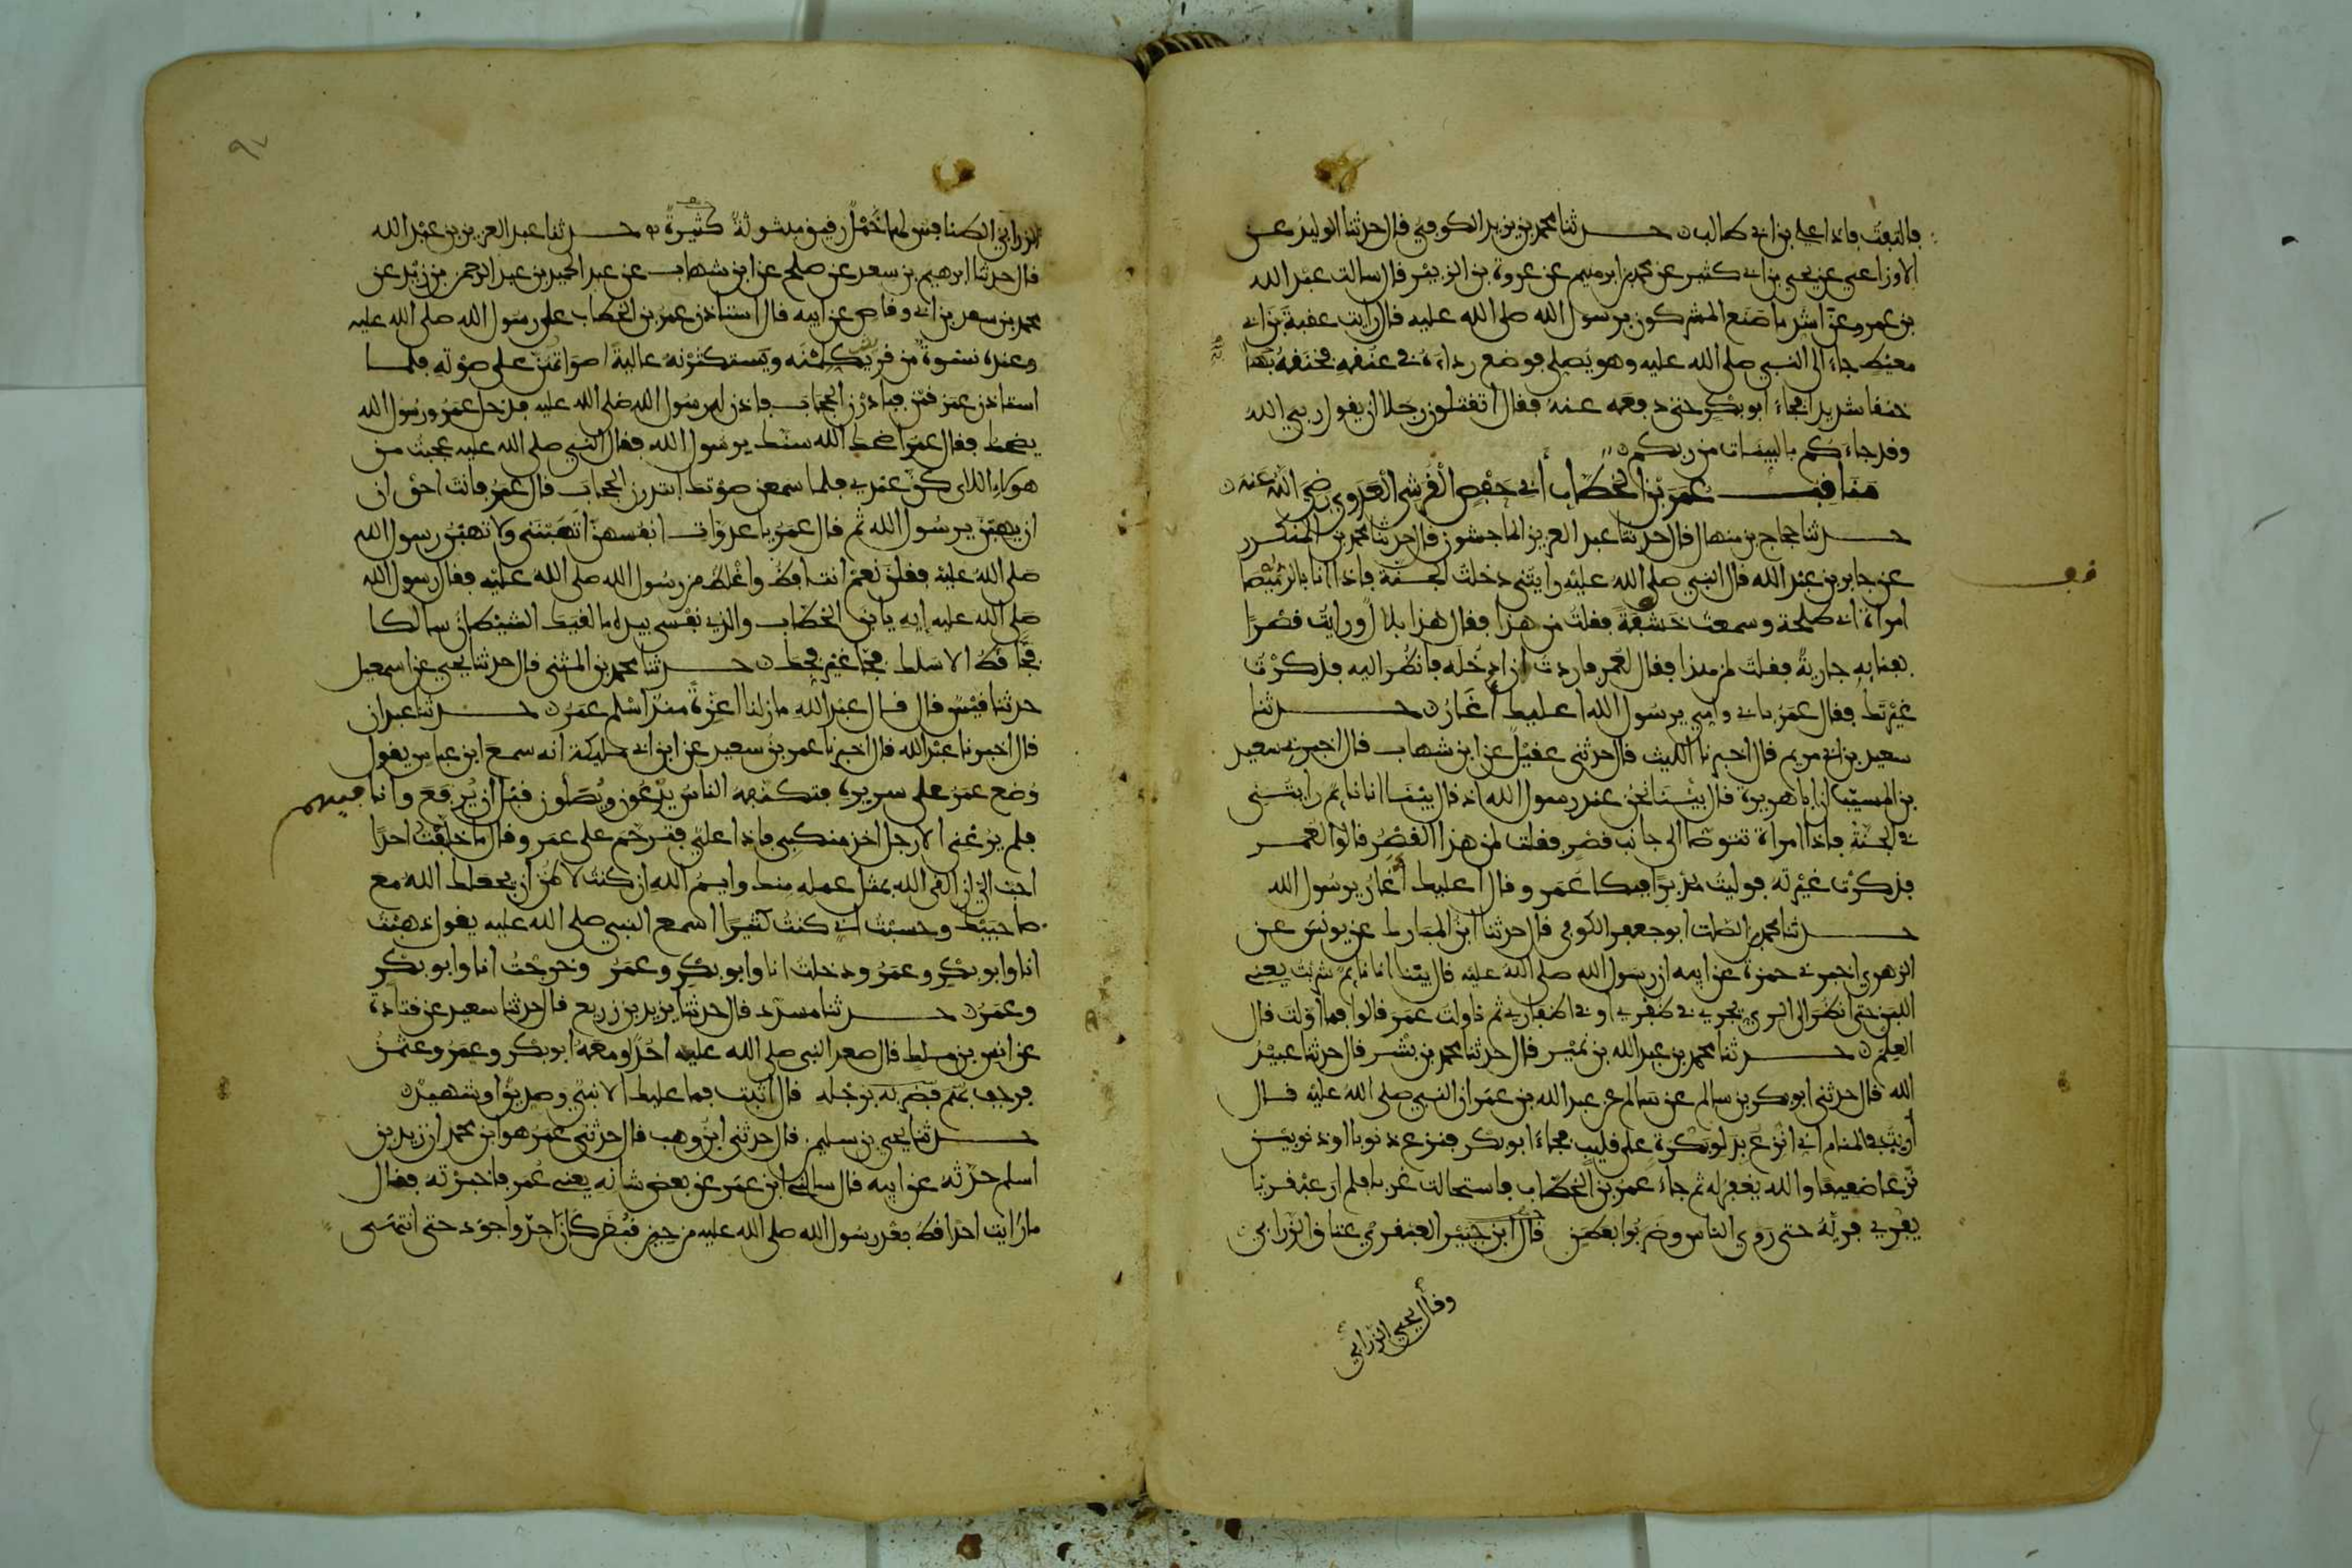 فالتفت فاذا علي بن ابي طالب حدثنا محمد بن يزيد الكوفي قال حدثنا الوليد عن
الاوزاعي عن يحيى بن ابي كثير عن محمد بن ابرهيم عن عروة بن الزبير قال سالت عبد الله
بن عمرو عن اشد ما صنع المشركون برسول الله صلى الله عليه قال رايت عقبة بن ابي
معيط جاء الى النبي صلى الله عليه وهو يصلي فوضع رداءه في عنقه فخنقه بها
خنقا شديدا فجاء ابو بكر حتى دفعه عنه فقال أتقتلون رجلا ان يقول ربي الله
وقد جاءكم بالبينات من ربكم
مناقب عمر بن الخطاب أبي حفص القرشي العدوي رضي الله عنه
حدثنا حجاج بن منهال قال حدثنا عبد العزيز الماجشون قال حدثنا محمد بن المنكدر
عن جابر بن عبد الله قال النبي صلى الله عليه رايتني دخلت الجنة فاذا انا بالرميصا
امراة ابي طلحة وسمعت خشفة فقلت من هذا فقال هذا بلال ورايت قصرا
بفنايه جارية فقلت لمن هذا فقال لعمر فاردت ان ادخله فانظر اليه فذكرت
غيرتك فقال عمر بابي وامي يرسول الله اعليك أغار حدثنا
سعيد بن ابي مريم قال اخبرنا الليث قال حدثني عقيل عن ابن شهاب قال اخبرني سعيد
بن المسيب ان ابا هريرة قال بينا نحن عند رسول الله اذ قال بينا انا نايم رايتني
في الجنة فاذا امراة تتوضا الى جانب قصر فقلت لمن هذا القصر قالوا لعمر
فذكرت غيرته فوليت مدبرا فبكا عمر وقال اعليك أغار يرسول الله
حدثنا محمد بن الصلت ابو جعفر الكوفي قال حدثنا ابن المبارك عن يونس عن
الزهري اخبرني حمزة عن ابيه ان رسول الله صلى الله عليه قال بينا انا نايم شربت يعني
اللبن حتى انظر الى الري يجري في ظفري او في اظفاري ثم ناولت عمر قالوا فما أولت قال
العلم حدثنا محمد بن عبد الله بن نمير قال حدثنا محمد بن بشر قال حدثنا عبيد
الله قال حدثني ابو بكر بن سالم عن سالم عن عبد الله بن عمر ان النبي صلى الله عليه قال
أريت في المنام اني انزع بدلو بكرة على قليب فجاء ابو بكر فنزع ذنوبا او ذنوبين
نزعا ضعيفا والله يغفر له ثم جاء عمر بن الخطاب فاستحالت غربا فلم ار عبقريا
يفري فريه حتى روي الناس وضربوا بعطن قال ابن جبير العبقري عتاق الزرابي
وقال يحيى الزرابي
الزرابي الطنافس لها خمل رقيق مبثوثة كثيرة حدثنا عبد العزيز بن عبد الله
قال حدثنا ابرهيم بن سعد عن صلح عن ابن شهاب عن عبد الحميد بن عبد الرحمن بن زيد عن
محمد بن سعد بن ابي وقاص عن ابيه قال استاذن عمر بن الخطاب على رسول الله صلى الله عليه
وعنده نسوة من قريش يكلمنه ويستكثرنه عالية اصواتهن على صوته فلما
استاذن عمر قمن فبادرن الحجاب فاذن له رسول الله صلى الله عليه فدخل عمر ورسول الله
يضحك فقال عمر اضحك الله سنك يرسول الله فقال النبي صلى الله عليه عجبت من
هولاء اللاى كن عندي فلما سمعن صوتك ابتدرن الحجاب قال عمر فانت احق ان
ان يهبن يرسول الله ثم قال عمر يا عدوات انفسهن اتهبنني ولا تهبن رسول الله
صلى الله عليه فقلن نعم انت افظ واغلظ من رسول الله صلى الله عليه فقال رسول الله
صلى الله عليه إيه يا بن الخطاب والذي نفسي بيده ما لقيك الشيطان سالكا
فجا قط الا سلك فجا غير فجك حدثنا محمد بن المثنى قال حدثنا يحيى عن اسمعيل
حدثنا قيس قال قال عبد الله مازلنا اعزة منذ اسلم عمر حدثنا عبدان
قال اخبرنا عبد الله قال اخبرنا عمر بن سعيد عن ابن ابي مليكة انه سمع ابن عباس يقول
وضع عمر على سريره فتكنفه الناس يدعون ويصلون قبل ان يرفع وانا فيهم
فلم يرعني الا رجل اخذ منكبي فاذا علي فترحم على عمر وقال ما خلفت احدا
احب الي ان القى الله بمثل عمله منك وايم الله ان كنت لاظن ان يجعلك الله مع
صاحبيك وحسبت اني كنت كثيرا اسمع النبي صلى الله عليه يقول ذهبت
انا وابو بكر وعمر ودخلت انا وابو بكر وعمر وخرجت انا وابو بكر
وعمر حدثنا مسدد قال حدثنا يزيد بن زريع قال حدثنا سعيد عن قتادة
عن انس بن ملك قال صعد النبي صلى الله عليه احدا ومعه ابو بكر وعمر وعثمن
فرجف بهم فضربه برجله قال اثبت فما عليك الا نبي وصديق او شهيد
حدثنا يحيى بن سليمن قال حدثني ابن وهب قال حدثني عمر هو ابن محمد ان زيد بن
اسلم حدثه عن ابيه قال سالني ابن عمر عن بعض شانه يعني عمر فاخبرته فقال
ما رايت احدا قط بعد رسول الله صلى الله عليه من حين قبض كان اجد واجود حتى انتهى